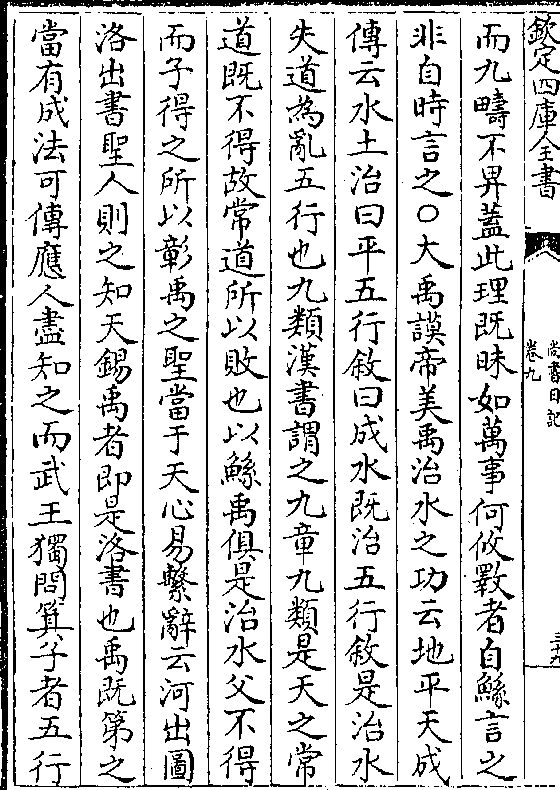 欽定四庫全書
尚書日記
卷九
三十九
而九疇不畀蓋此理既昧如萬事何攸斁者自鯀言之
非自時言之○大禹謨帝美禹治水之功云地平天成
傳云水土治曰平五行敘曰成水既治五行敘是治水
失道為亂五行也九類漢書謂之九章九類是天之常
道既不得故常道所以敗也以鯀禹俱是治水父不得
而子得之所以彰禹之聖當于天心易繫辭云河出圖
洛出書聖人則之知天錫禹者即是洛書也禹既第之
當有成法可傳應人盡知之而武王獨問箕子者五行